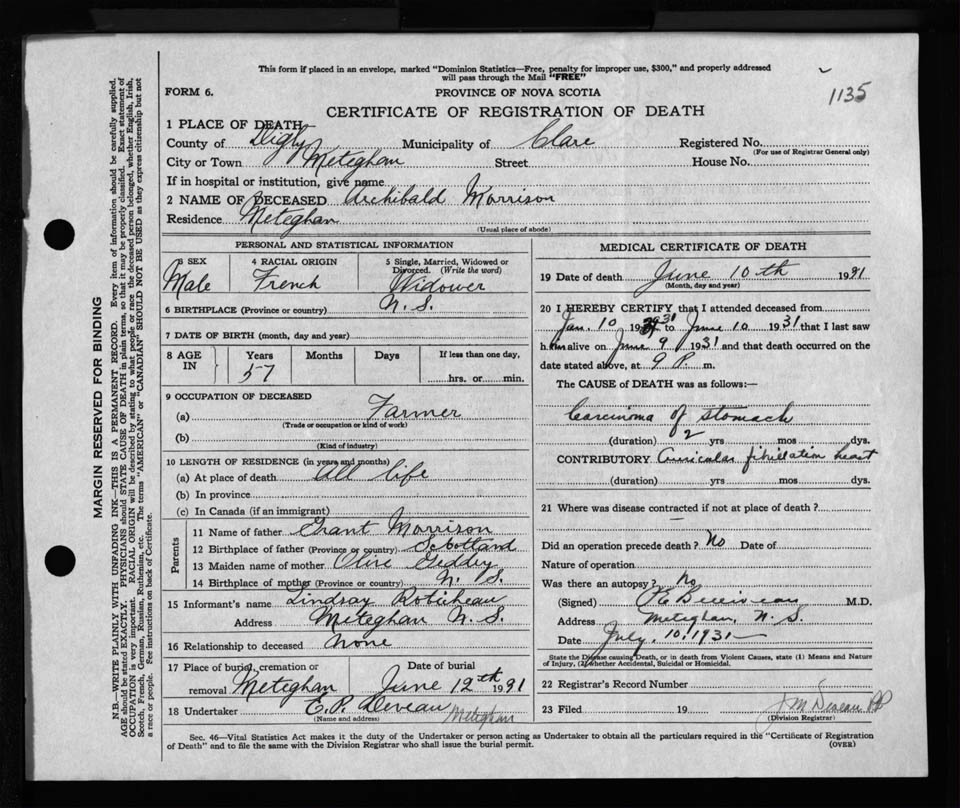 This form if placed in an envelope, marked "Dominion Statistics—Free, penalty for improper use, $300," and properly addressed
will pass through the Mail "FREE"
FORM 6.
PROVINCE OF NOVA SCOTIA
1135
CERTIFICATE OF REGISTRATION OF DEATH
1 PLACE OF DEATH
County of Digby Municipality of Clare Registered No.
(For use of Registrar General only)
City or Town Meteghan Street House No.
If in hospital or institution, give name
2 NAME OF DECEASED Archibald Morrison
Residence Meteghan
(Usual place of abode)
PERSONAL AND STATISTICAL INFORMATION
3 SEX 4 RACIAL ORIGIN 5 Single, Married, Widowed or
Divorced. (Write the word)
Male French Widower
6 BIRTHPLACE (Province or country) N. S.
7 DATE OF BIRTH (month, day and year)
8 AGE IN Years Months Days If less than one day,
57 hrs. or min.
9 OCCUPATION OF DECEASED
(a) Farmer
(Trade or occupation or kind of work)
(b)
(Kind of industry)
10 LENGTH OF RESIDENCE (in years and months)
(a) At place of death All life
(b) In province
(c) In Canada (if an immigrant)
Parents
11 Name of father Grant Morrison
12 Birthplace of father (Province or country) Scottland
13 Maiden name of mother Olive
14 Birthplace of mother (Province or country) N. S.
15 Informant's name Lindsay Robicheau
Address Meteghan N. S.
16 Relationship to deceased None
17 Place of burial, cremation or Date of burial
removal Meteghan June 12th 1931
18 Undertaker E. P. Deveau Meteghan
(Name and address)
MEDICAL CERTIFICATE OF DEATH
19 Date of death June 10th 1931
(Month, day and year)
20 I HEREBY CERTIFY that I attended deceased from
Jan. 10 1931 to June 10 1931 that I last saw
him alive on June 9 1931 and that death occurred on the
date stated above, at 9 P. m.
The CAUSE of DEATH was as follows:—
Carcinoma of stomach
(duration) 2 yrs mos dys.
CONTRIBUTORY Auricular fibrillation heart
(duration) yrs. mos. dys.
21 Where was disease contracted if not at place of death?
Did an operation precede death? No Date of
Nature of operation
Was there an autopsy? No
(Signed) M.D.
Address Meteghan, N. S.
Date July, 10, 1931
State the Disease causing Death, or in death from Violent Causes, state (1) Means and Nature
of Injury, (2) whether Accidental, Suicidal or Homicidal.
22 Registrar's Record Number
23 Filed 19 J M Deveau
(Division Registrar)
Sec. 46—Vital Statistics Act makes it the duty of the Undertaker or person acting as Undertaker to obtain all the particulars required in the "Certificate of Registration
of Death" and to file the same with the Division Registrar who shall issue the burial permit.
(OVER)
MARGIN RESERVED FOR BINDING
N.B.—WRITE PLAINLY WITH UNFADING INK—THIS IS A PERMANENT RECORD. Every item of information should be carefully supplied.
AGE should be stated EXACTLY. PHYSICIANS should STATE CAUSE OF DEATH in plain terms, so that it may be properly classified. Exact statement of
OCCUPATION is very important. RACIAL ORIGIN will be described by stating to what people or race the deceased person belonged, whether English, Irish,
Scotch, French, German, Russian, Ruthenian, etc. The terms "AMERICAN" or "CANADIAN" SHOULD NOT BE USED as they express citizenship but not
a race or people. See instructions on back of Certificate.